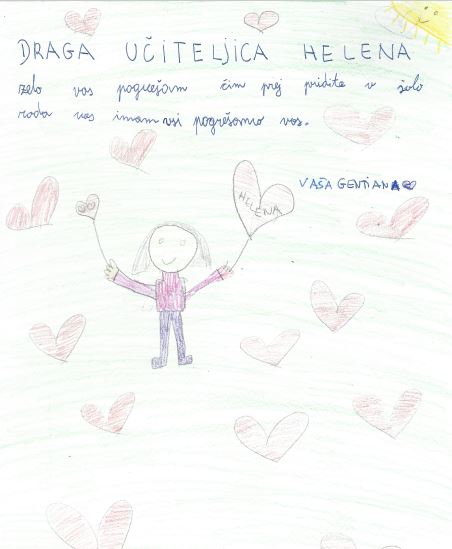 DRAGA UČITELJICA HELENA
zelo vas pogrešam čim prej pridite v šolo
rada vas imam vsi pogrešamo vas.
VAŠA GENTIANA
HELENA